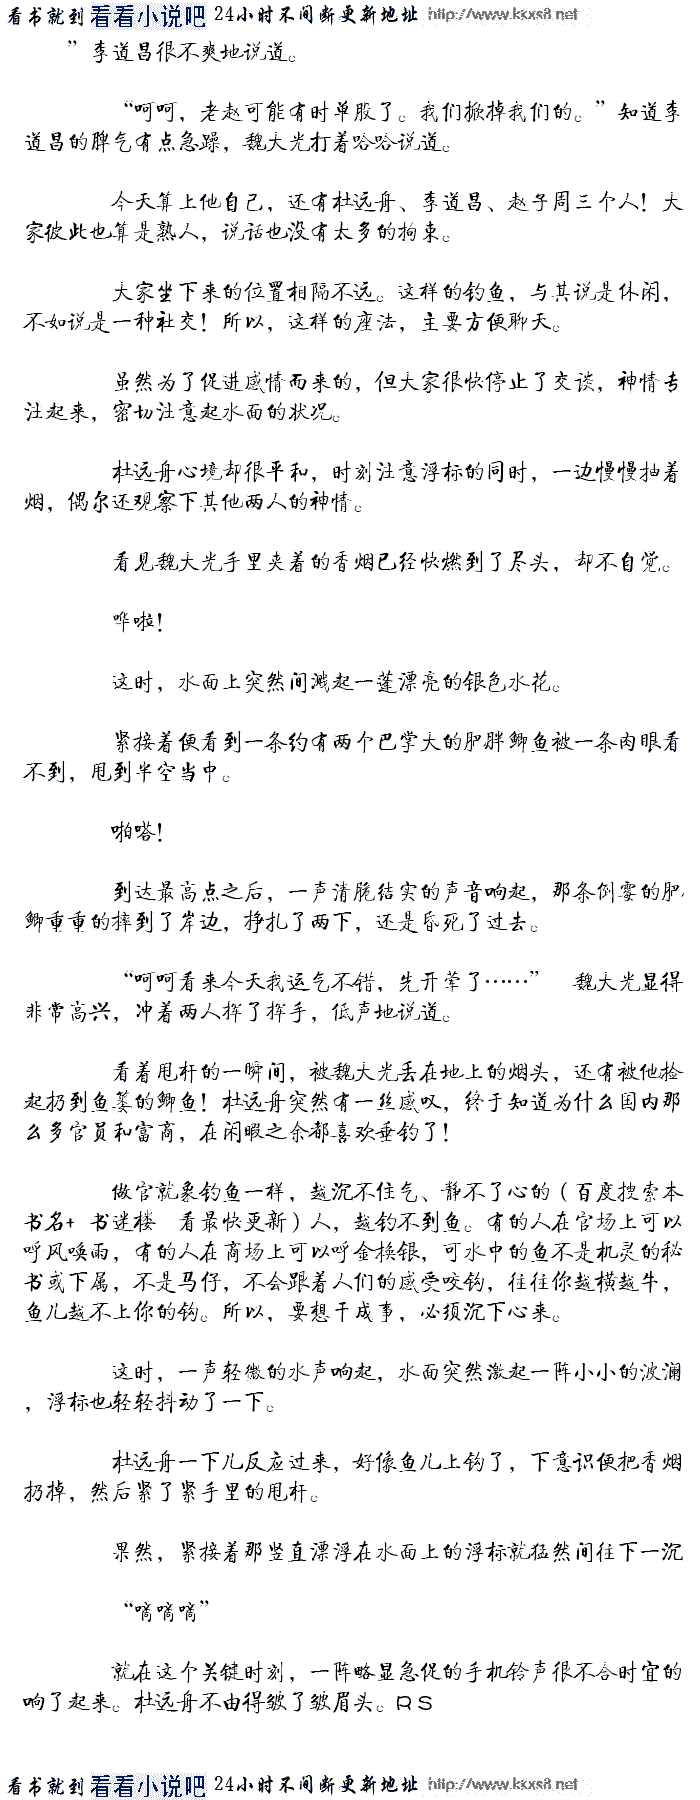 看书就到 看看小说吧 24小时不间断更新地址 http://www.kxxs8.net
”李道昌很不爽地说道。
“呵呵，老赵可能有时单股了。我们掀掉我们的。”知道李
道昌的脾气有点急躁，魏大光打着哈哈说道。
今天算上他自己，还有杜远舟、李道昌、赵子周三个人！大
家彼此也算是熟人，说话也没有太多的拘束。
大家坐下来的位置相隔不远。这样的钓鱼，与其说是休闲，
不如说是一种社交！所以，这样的座法，主要方便聊天。
虽然为了促进感情而来的，但大家很快停止了交谈，神情专
注起来，密切注意起水面的状况。
杜远舟心境却很平和，时刻注意浮标的同时，一边慢慢抽着
烟，偶尔还观察下其他两人的神情。
看见魏大光手里夹着的香烟已经快燃到了尽头，却不自觉。
哗啦！
这时，水面上突然间溅起一蓬漂亮的银色水花。
紧接着便看到一条约有两个巴掌大的肥胖鲫鱼被一条肉眼看
不到，甩到半空当中。
啪嗒！
到达最高点之后，一声清脆结实的声音响起，那条倒霉的肥
鲫重重的摔到了岸边，挣扎了两下，还是昏死了过去。
“呵呵看来今天我运气不错，先开荤了……” 魏大光显得
非常高兴，冲着两人挥了挥手，低声地说道。
看着甩杆的一瞬间，被魏大光丢在地上的烟头，还有被他捡
起扔到鱼篓的鲫鱼！杜远舟突然有一丝感叹，终于知道为什么国内那
么多官员和富商，在闲暇之余都喜欢垂钓了！
做官就象钓鱼一样，越沉不住气、静不了心的（百度搜索本
书名+ 书迷楼 看最快更新）人，越钓不到鱼。有的人在官场上可以
呼风唤雨，有的人在商场上可以呼金换银，可水中的鱼不是机灵的秘
书或下属，不是马仔，不会跟着人们的感受咬钩，往往你越横越牛，
鱼儿越不上你的钩。所以，要想干成事，必须沉下心来。
这时，一声轻微的水声响起，水面突然激起一阵小小的波澜
，浮标也轻轻抖动了一下。
杜远舟一下儿反应过来，好像鱼儿上钩了，下意识便把香烟
扔掉，然后紧了紧手里的甩杆。
果然，紧接着那竖直漂浮在水面上的浮标就猛然间往下一沉
“嘀嘀嘀”
就在这个关键时刻，一阵略显急促的手机铃声很不合时宜的
响了起来。杜远舟不由得皱了皱眉头。RS
看书就到 看看小说吧 24小时不间断更新地址 http://www.kxxs8.net